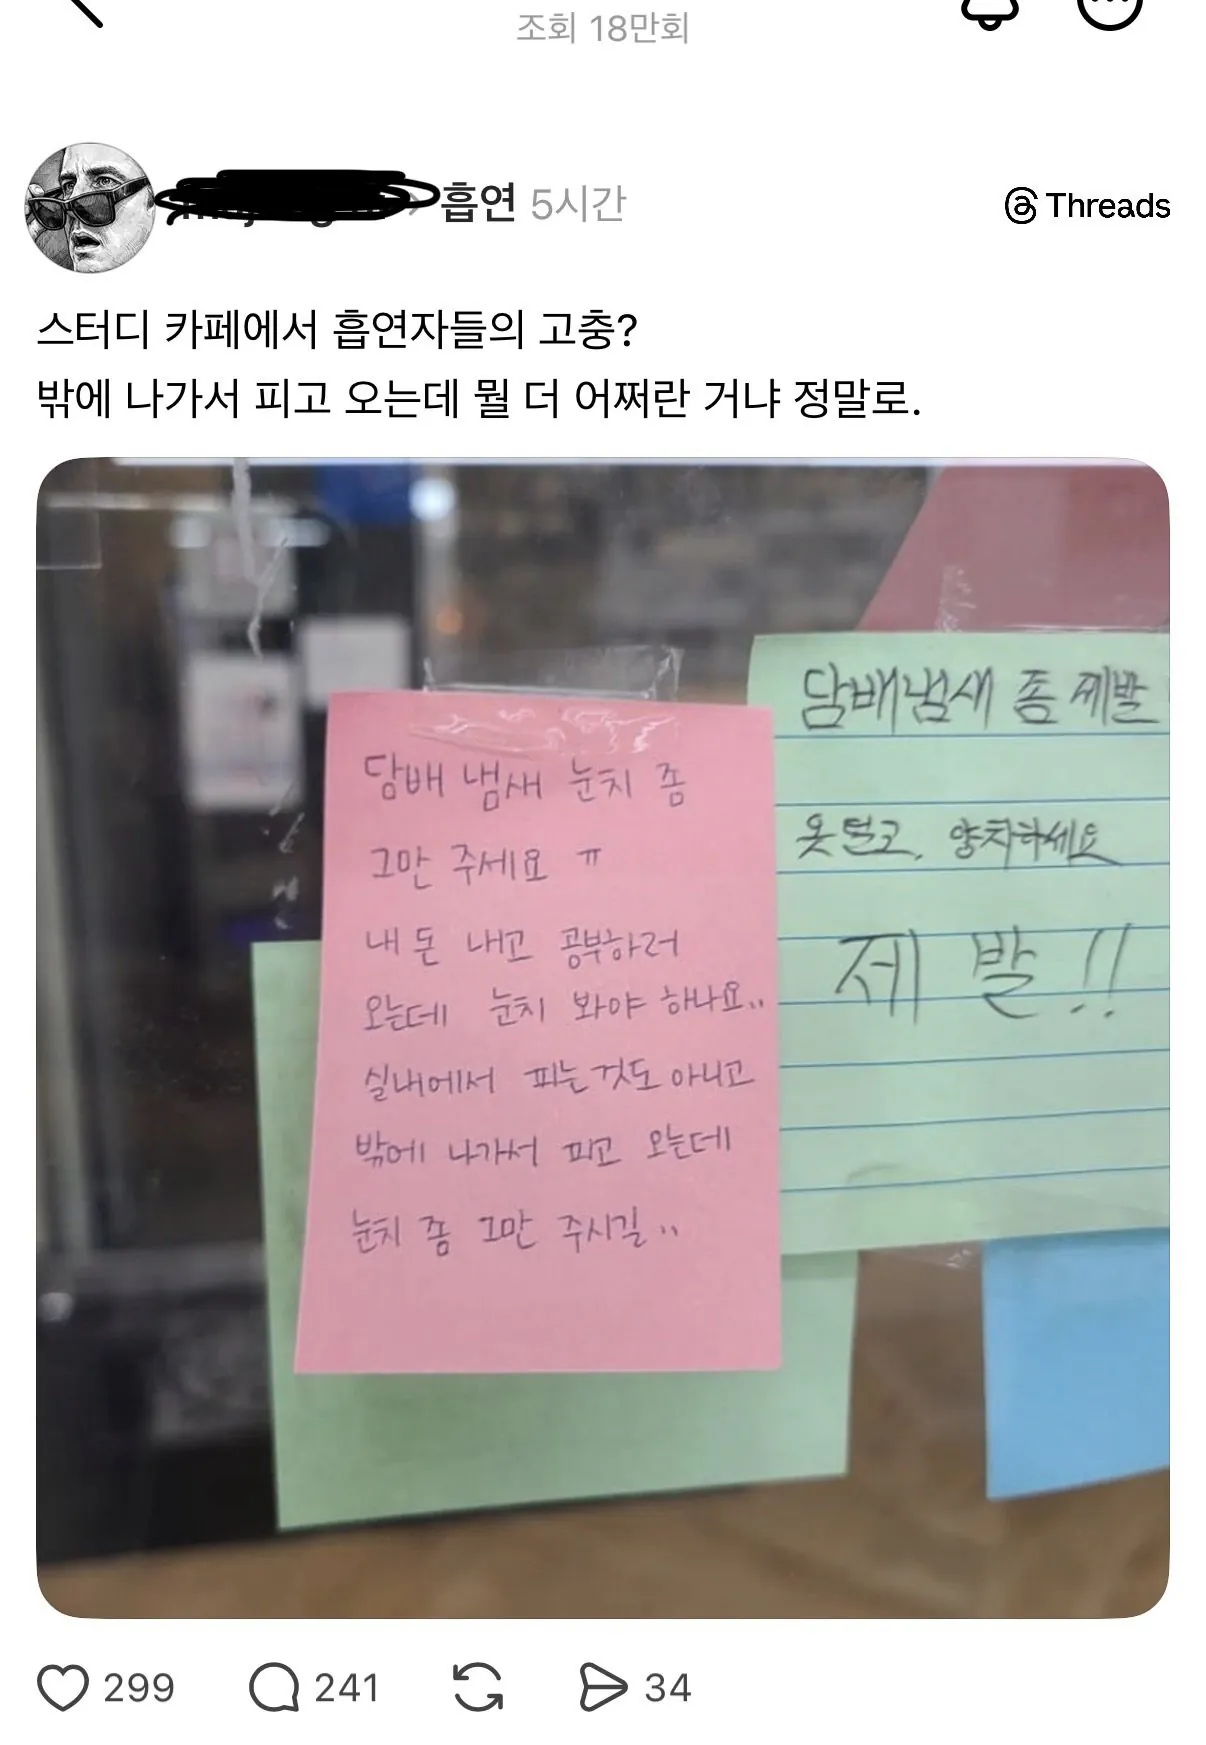 조회 18만회
흡연 5시간
Threads
스터디 카페에서 흡연자들의 고충?
밖에 나가서 피고 오는데 뭘 더 어쩌란 거냐 정말로.
담배 냄새 눈치 좀
그만 주세요 ㅠ
내 돈 내고 공부하러
오는데 눈치 봐야 하나요..
실내에서 피는것도 아니고
밖에 나가서 피고 오는데
눈치 좀 그만 주시길..
담배냄새 좀 제발
옷털고, 양치하세요
제발!!
299
241
34